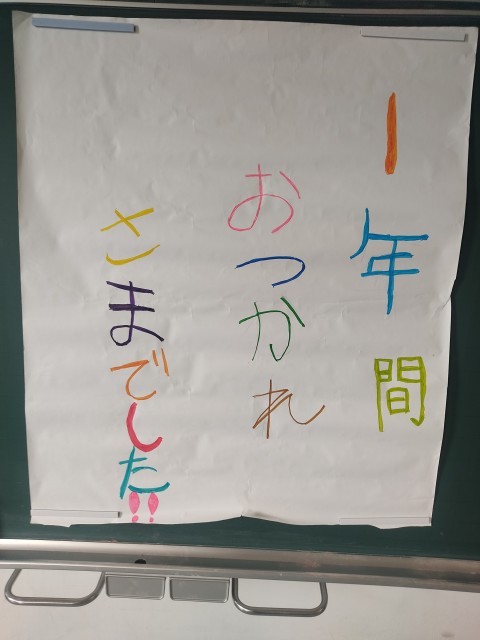 1年間
おつかれ
さまでした!!